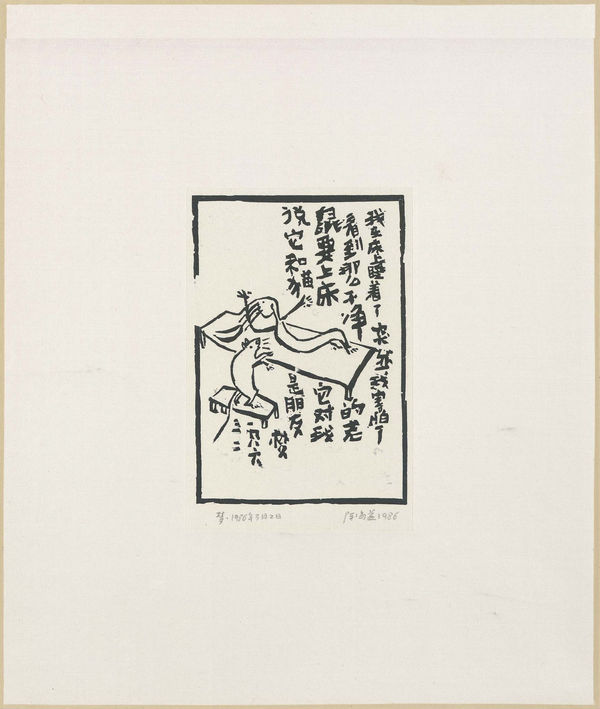 我在床上睡着了突然我害怕了
看到那么不净的老
鼠要上床它对我
说它和猫是朋友
梦
一九八六
梦.1986年3月2日
1986